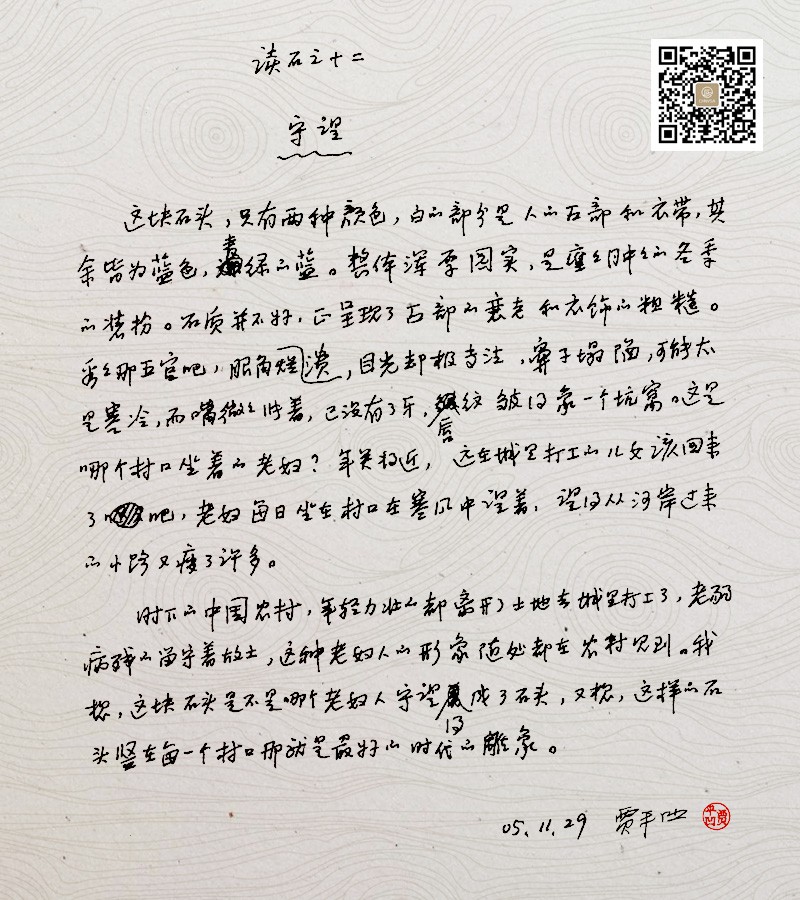 读石之十二
守望
这块石头，只有两种颜色，白的部分是人的头部和衣带，其
余皆为蓝色，青绿的蓝。整体浑厚圆实，是臃臃肿肿的冬季
的装扮。石质并不好，正呈现了头部的衰老和衣饰的粗糙。
看看那五官吧，眼角烂溃，目光却极专注，鼻子塌陷，可能太
是寒冷，而嘴微微张着，已没有了牙，唇纹皱得象一个坑窝。这是
哪个村口坐着的老妇？年关将近，这在城里打工的儿女该回来
了吧，老妇每日坐在村口在寒风中望着，望得从河岸过来
的小路又瘦了许多。
时下的中国农村，年轻力壮的都离开了土地去城里打工了，老弱
病残的留守着故土，这种老妇人的形象随处都在农村见到。我
想，这块石头是不是哪个老妇人守望得成了石头，又想，这样的石
头竖在每一个村口那就是最好的时代的雕象。
05.11.29 贾平凹
贾平凹